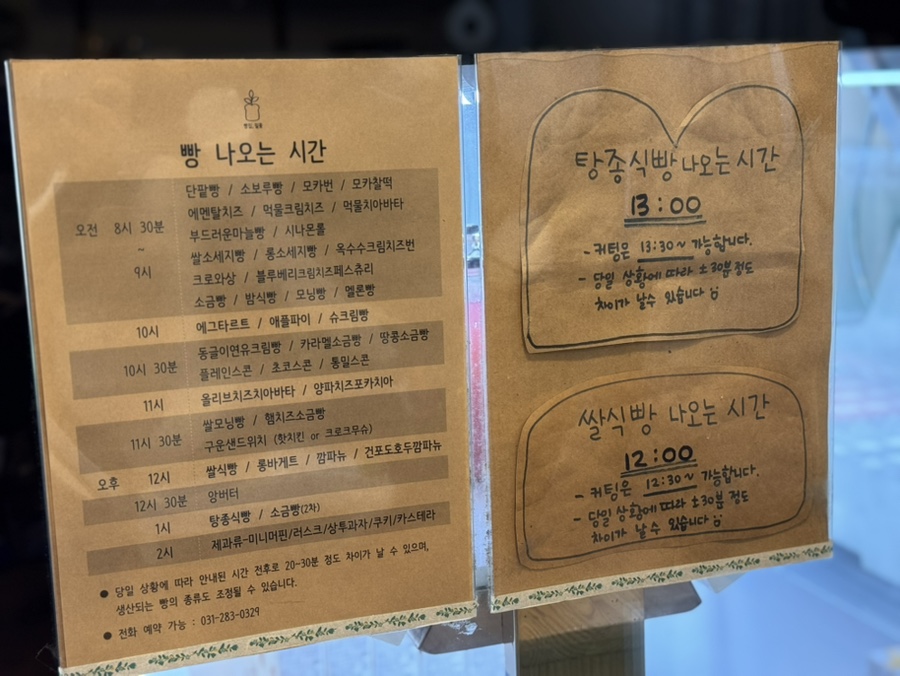 빵 나오는 시간
오전 8시 30분
~
9시
단팥빵 / 소보루빵 / 모카번 / 모카찰떡
에멘탈치즈 / 먹물크림치즈 / 먹물치아바타
부드러운마늘빵 / 시나몬롤
쌀소세지빵 / 롱소세지빵 / 옥수수크림치즈번
크로와상 / 블루베리크림치즈페스츄리
소금빵 / 밤식빵 / 모닝빵 / 멜론빵
10시 에그타르트 / 애플파이 / 슈크림빵
10시 30분 동글이연유크림빵 / 카라멜소금빵 / 땅콩소금빵
플레인스콘 / 초코스콘 / 통밀스콘
11시 올리브치즈치아바타 / 양파치즈포카치아
11시 30분 쌀모닝빵 / 햄치즈소금빵
구운샌드위치 (핫치킨 or 크로크무슈)
오후 12시 쌀식빵 / 롱바게트 / 깜파뉴 / 건포도호두깜파뉴
12시 30분 앙버터
1시 탕종식빵 / 소금빵(2차)
2시 제과류-미니머핀/러스크/상투과자/쿠키/카스테라
● 당일 상황에 따라 안내된 시간 전후로 20-30분 정도 차이가 날 수 있으며,
생산되는 빵의 종류도 조정될 수 있습니다.
● 전화 예약 가능 : 031-283-0329
탕종식빵 나오는 시간
13:00
- 커팅은 13:30~ 가능합니다.
- 당일 상황에 따라 ±30분 정도
차이가 날수 있습니다
쌀식빵 나오는 시간
12:00
- 커팅은 12:30~ 가능합니다.
- 당일 상황에 따라 ±30분 정도
차이가 날수 있습니다